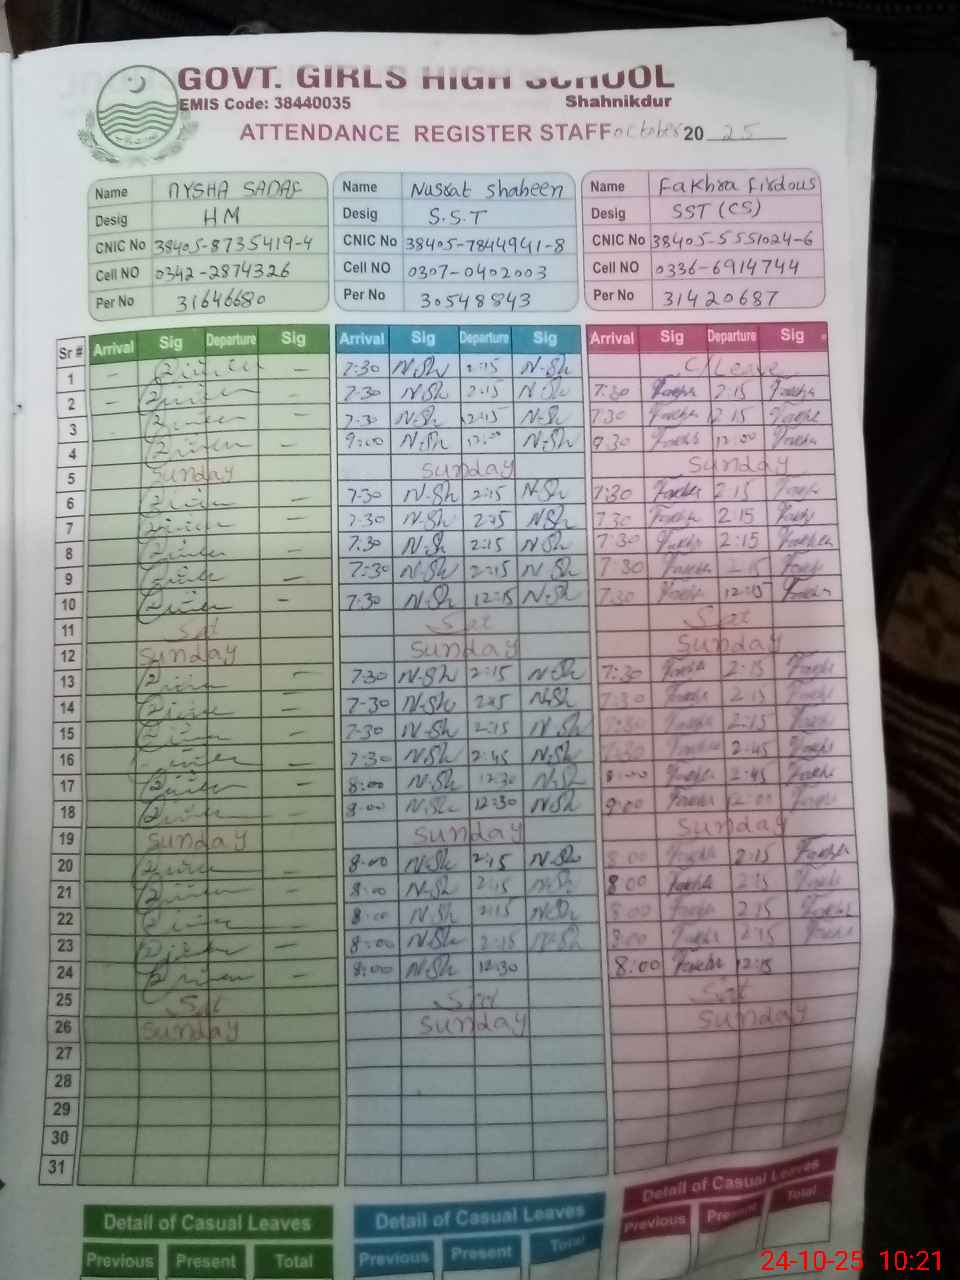 GOVT. GIRLS HIGH SCHOOL
EMIS Code: 38440035 Shahnikdur
ATTENDANCE REGISTER STAFF october 2025
Name AYSHA SADAF Name Nusrat Shaheen Name Fakhra Firdous
Desig HM Desig S.S.T Desig SST (CS)
CNIC No 38405-8735419-4 CNIC No 38405-7844941-8 CNIC No 38405-5551024-6
Cell NO 0342-2874326 Cell NO 0307-0402003 Cell NO 0336-6914744
Per No 31646680 Per No 30548843 Per No 31420687
Sr # Arrival Sig Departure Sig Arrival Sig Departure Sig Arrival Sig Departure Sig
1 - - 7:30 N-Sh 2:15 N-Sh C/Leave
2 - - 7:30 N-Sh 2:15 N-Sh 7:30 Fakhra 2:15 Fakhra
3 - 7:30 N-Sh 2:15 N-Sh 7:30 2:15
4 - 9:00 N-Sh 12:00 N-Sh 9:30 12:00
5 Sunday Sunday Sunday
6 - 7:30 N-Sh 2:15 N-Sh 7:30 2:15
7 - 7:30 N-Sh 2:15 N-Sh 7:30 2:15
8 - 7:30 N-Sh 2:15 N-Sh 7:30 2:15
9 - 7:30 N-Sh 2:15 N-Sh 7:30 2:15
10 - 7:30 N-Sh 12:15 N-Sh 7:30 12:15
11 Sat Sat Sat
12 Sunday Sunday Sunday
13 - 7:30 N-Sh 2:15 N-Sh 7:30 2:15
14 - 7:30 N-Sh 2:15 N-Sh 7:30 2:15
15 - 7:30 N-Sh 2:15 N-Sh 7:30 2:15
16 - 7:30 N-Sh 2:45 N-Sh 7:30 2:45
17 - 8:00 N-Sh 12:30 N-Sh 8:00 2:45
18 - 8:00 N-Sh 12:30 N-Sh 9:00
19 Sunday Sunday Sunday
20 - 8:00 N-Sh 2:15 N-Sh 8:00 2:15
21 - 8:00 N-Sh 2:15 N-Sh 8:00 2:15
22 - 8:00 N-Sh 2:15 N-Sh 8:00 2:15
23 - 8:00 N-Sh 2:15 N-Sh 8:00 2:15
24 - 8:00 N-Sh 12:30 8:00 12:15
25 Sat Sat Sat
26 Sunday Sunday Sunday
27
28
29
30
31
Detail of Casual Leaves Detail of Casual Leaves Detail of Casual Leaves
Previous Present Total Previous Present Total Previous Present Total
24-10-25 10:21